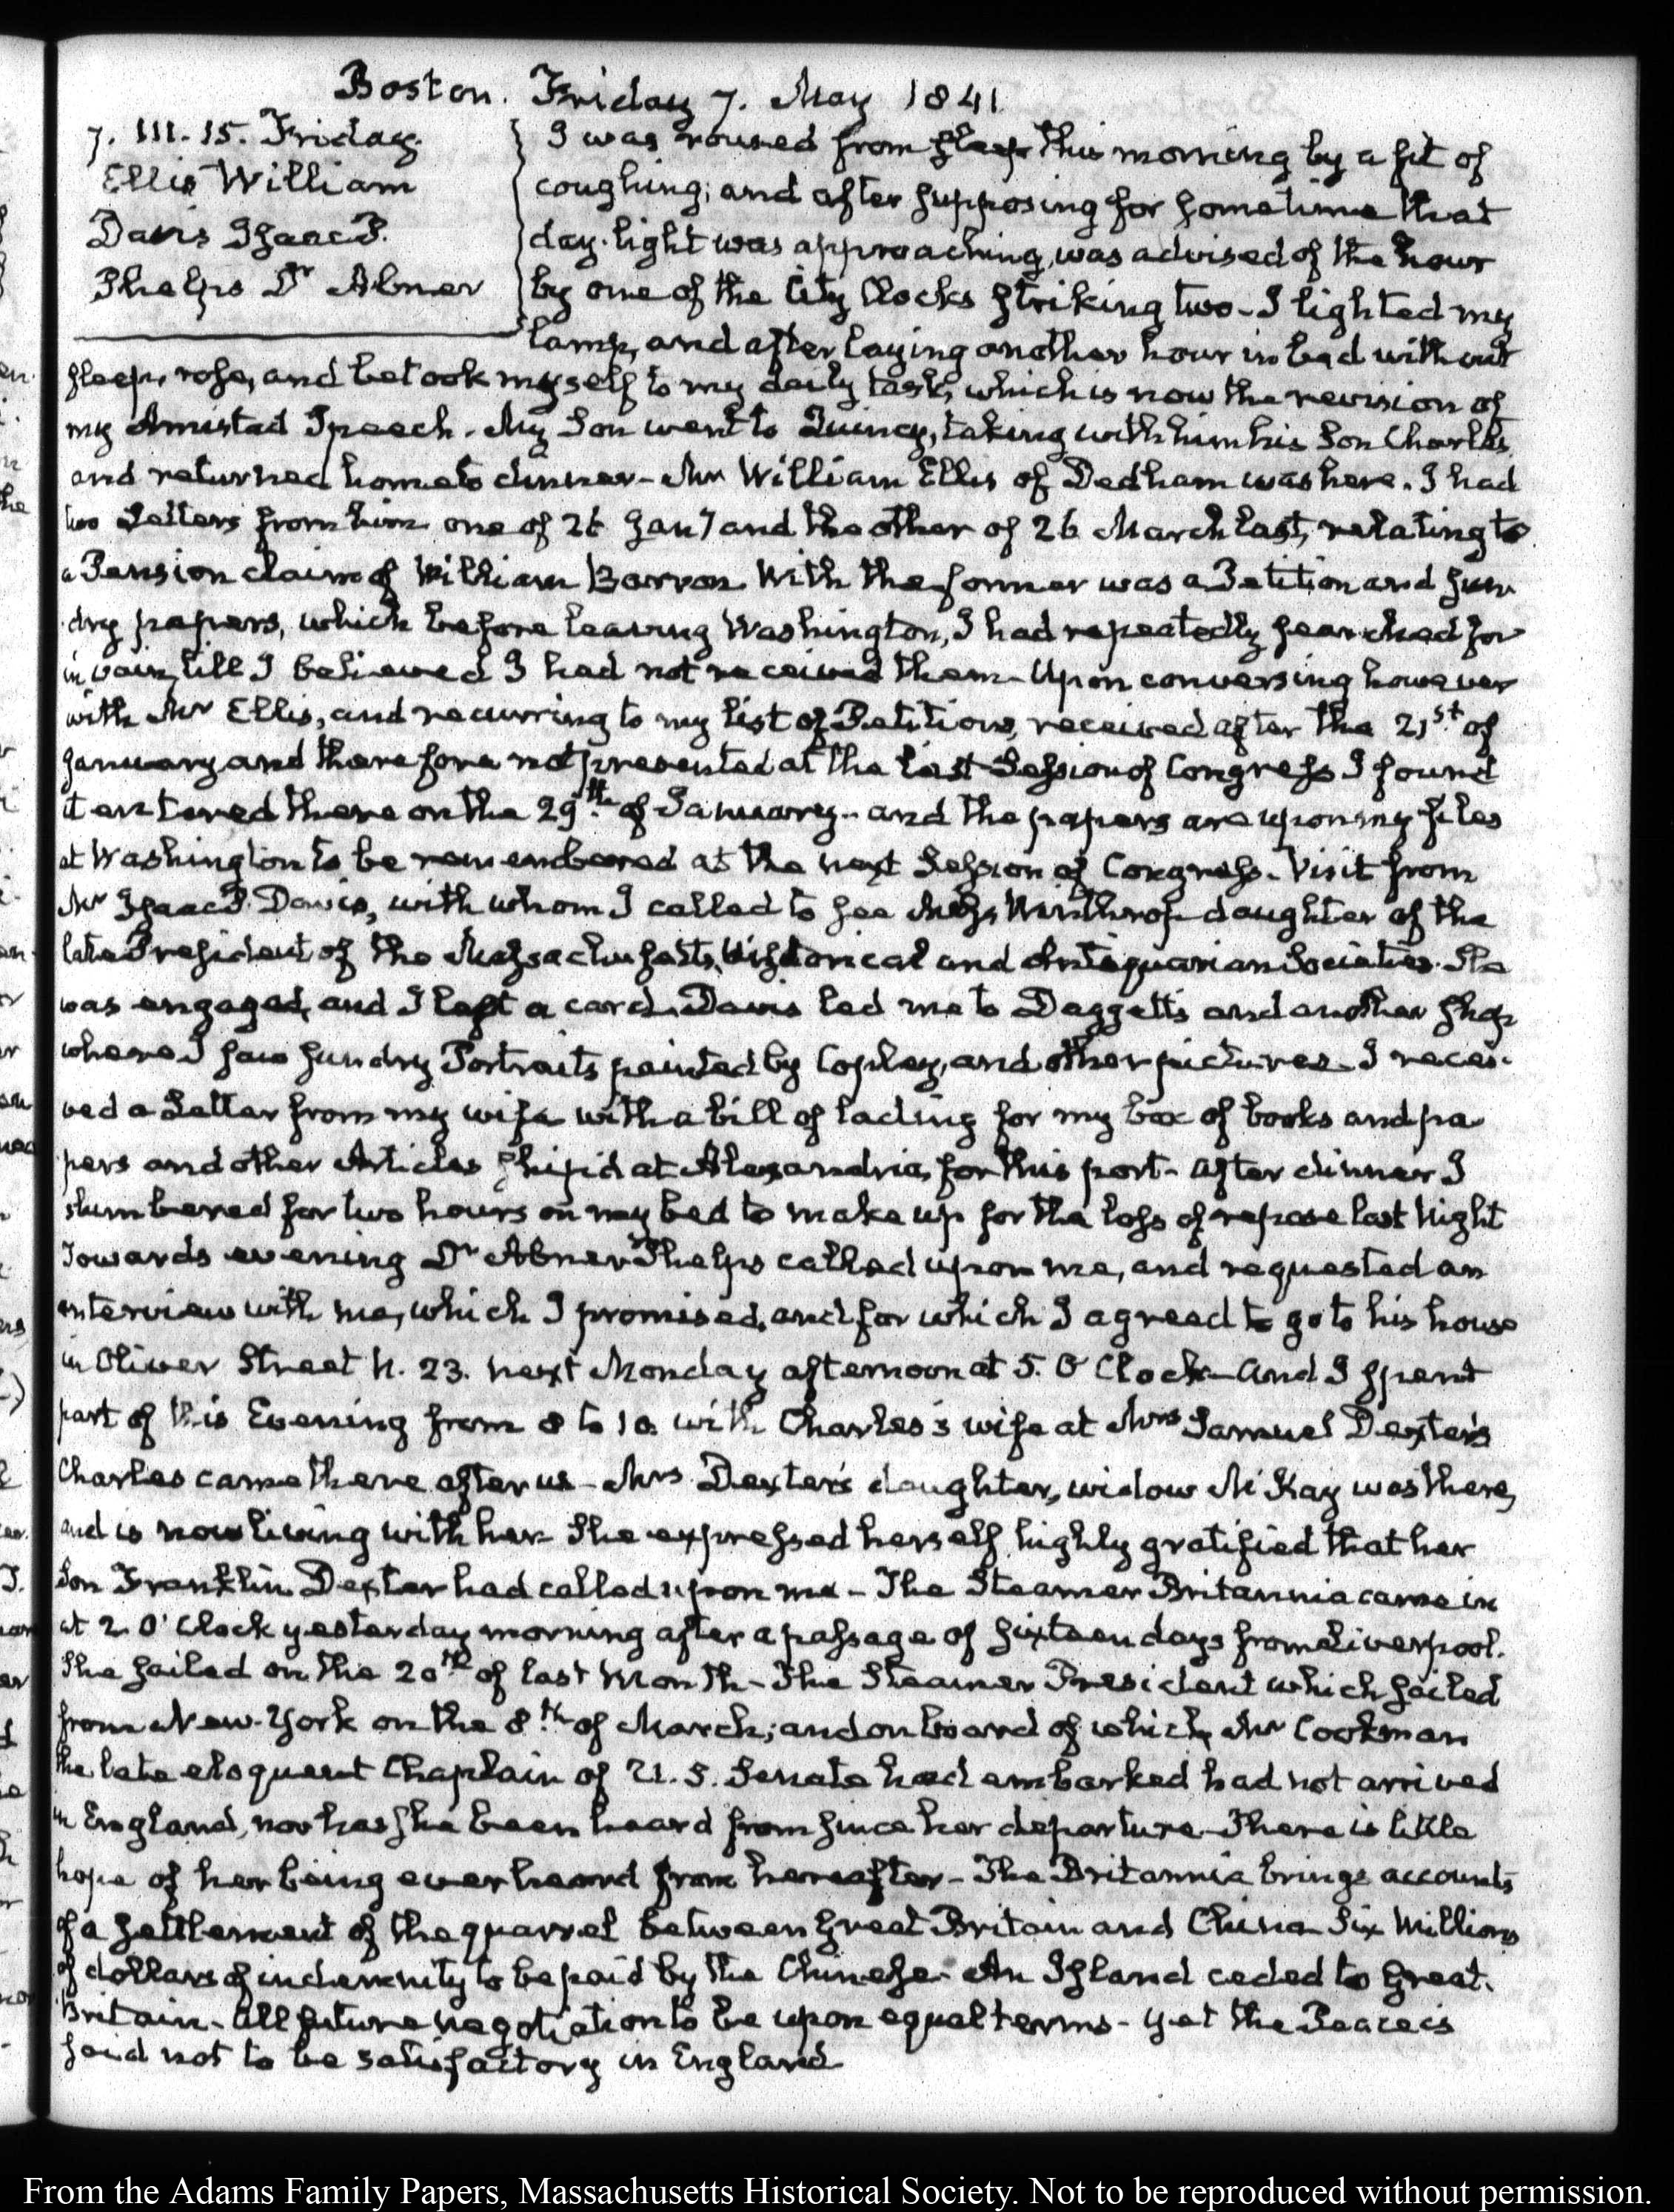 Boston. Friday 7. May 1841.
7. III. 15. Friday.
Ellis William
Davis Isaac P.
Phelps Dr Abner
I was roused from sleep this morning by a fit of
coughing; and after supposing for sometime that
day-light was approaching, was advised of the hour
by one of the City Clocks striking two - I lighted my
lamp, and after laying another hour in bed without
sleep, rose, and betook myself to my daily task, which is now the revision of
my Amistad Speech. My Son went to Quincy, taking with him his Son Charles,
and returned home to dinner - Mr William Ellis of Dedham was here. I had
two Letters from him one of 26 Jany and the other of 26 March last, relating to
a Pension claim of William Barron. With the former was a Petition and sun-
dry papers, which before leaving Washington, I had repeatedly searched for
in vain, till I believed I had not received them - Upon conversing however
with Mr Ellis, and recurring to my list of Petitions, received after the 21st of
January and therefore not presented at the last Session of Congress I found
it entered there on the 29th of January - and the papers are upon my files
at Washington to be remembered at the next Session of Congress - Visit from
Mr Isaac P. Davis, with whom I called to see Miss Winthrop daughter of the
late President of the Massachusetts, Historical and Antiquarian Societies. She
was engaged, and I left a card. Davis led me to Daggett's and another shop
where I saw sundry Portraits painted by Copley, and other pictures - I recei-
ved a Letter from my wife with a bill of lading for my box of books and pa-
pers and other Articles ship'd at Alexandria, for this port - After dinner I
slumbered for two hours on my bed to make up for the loss of repose last Night
Towards evening Dr Abner Phelps called upon me, and requested an
interview with me, which I promised, and for which I agreed to go to his house
in Oliver Street N. 23. next Monday afternoon at 5. O'Clock - And I spent
part of this Evening from 8 to 10. with Charles's wife at Mrs Samuel Dexter's
Charles came there after us - Mrs Dexter's daughter, widow McKay was there,
and is now living with her - She expressed herself highly gratified that her
Son Franklin Dexter had called upon me - The Steamer Britannia came in
at 2. O'Clock yesterday morning after a passage of sixteen days from Liverpool.
She sailed on the 20th of last Month - The Steamer President which sailed
from New-York on the 8th of March; and on board of which, Mr Cookman
the late eloquent Chaplain of U.S. Senate had embarked had not arrived
in England, nor has she been heard from since her departure - There is little
hope of her being ever heard from hereafter - The Britannia brings accounts
of a settlement of the quarrel between Great Britain and China - Six Millions
of dollars of indemnity to be paid by the Chinese - An Island ceded to Great-
Britain - All future negotiation to be upon equal terms - yet the Peace is
said not to be satisfactory in England
From the Adams Family Papers, Massachusetts Historical Society. Not to be reproduced without permission.